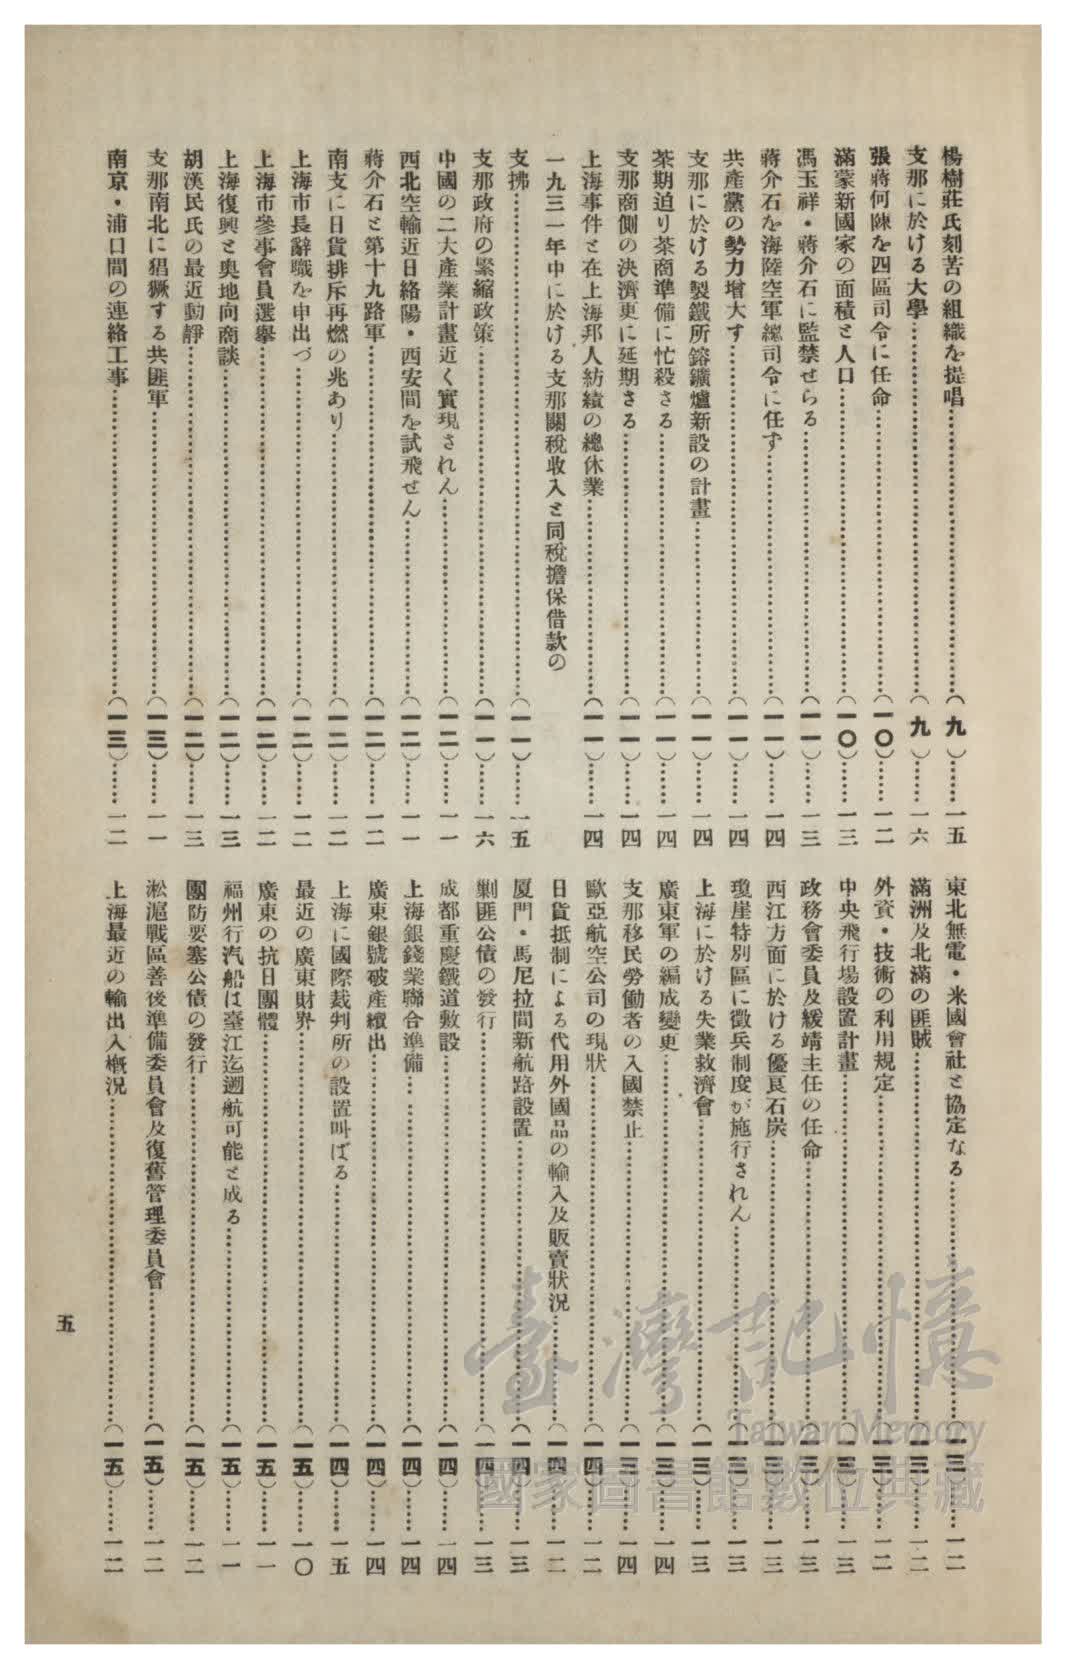 楊樹莊氏刻苦の組織を提唱……(九)……一五
支那に於ける大學……(九)……一六
張蔣何陳を四區司令に任命……(一〇)……一二
滿蒙新國家の面積と人口……(一〇)……一三
馮玉祥・蔣介石に監禁せらる……(一一)……一三
蔣介石を海陸空軍總司令に任ず……(一一)……一四
共產黨の勢力增大す……(一一)……一四
支那に於ける製鐵所鎔鑛爐新設の計畫……(一一)……一四
茶期迫り茶商準備に忙殺さる……(一一)……一四
支那商側の決濟更に延期さる……(一一)……一四
上海事件と在上海邦人紡績の總休業……(一一)……一四
一九三一年中に於ける支那關稅收入と同稅擔保借款の
支拂……(一一)……一五
支那政府の緊縮政策……(一一)……一六
中國の二大產業計畫近く實現されん……(一二)……一一
西北空輸近日絡陽・西安間を試飛せん……(一二)……一一
蔣介石と第十九路軍……(一二)……一二
南支に日貨排斥再燃の兆あり……(一二)……一二
上海市長辭職を申出づ……(一二)……一二
上海市參事會員選擧……(一二)……一二
上海復興と奧地向商談……(一二)……一三
胡漢民氏の最近動靜……(一二)……一三
支那南北に猖獗する共匪軍……(一三)……一一
南京・浦口間の連絡工事……(一三)……一二
東北無電・米國會社と協定なる……(一三)……一二
滿洲及北滿の匪賊……(一三)……一二
外資・技術の利用規定……(一三)……一二
中央飛行場設置計畫……(一三)……一三
政務會委員及緩靖主任の任命……(一三)……一三
西江方面に於ける優良石炭……(一三)……一三
瓊崖特別區に徵兵制度が施行されん……(一三)……一三
上海に於ける失業救濟會……(一三)……一三
廣東軍の編成變更……(一三)……一四
支那移民勞働者の入國禁止……(一三)……一四
歐亞航空公司の現狀……(一四)……一二
日貨抵制による代用外國品の輸入及販賣狀況……(一四)……一二
厦門・馬尼拉間新航路設置……(一四)……一三
剿匪公債の發行……(一四)……一三
成都重慶鐵道敷設……(一四)……一四
上海銀錢業聯合準備……(一四)……一四
廣東銀號破產續出……(一四)……一四
上海に國際裁判所の設置叫ばる……(一四)……一五
最近の廣東財界……(一五)……一〇
廣東の抗日團體……(一五)……一一
福州行汽船は臺江迄遡航可能と成る……(一五)……一一
團防要塞公債の發行……(一五)……一二
淞滬戰區善後準備委員會及復舊管理委員會……(一五)……一二
上海最近の輸出入槪況……(一五)……一二
五
臺灣記憶
Taiwan Memory
國家圖書館數位典藏